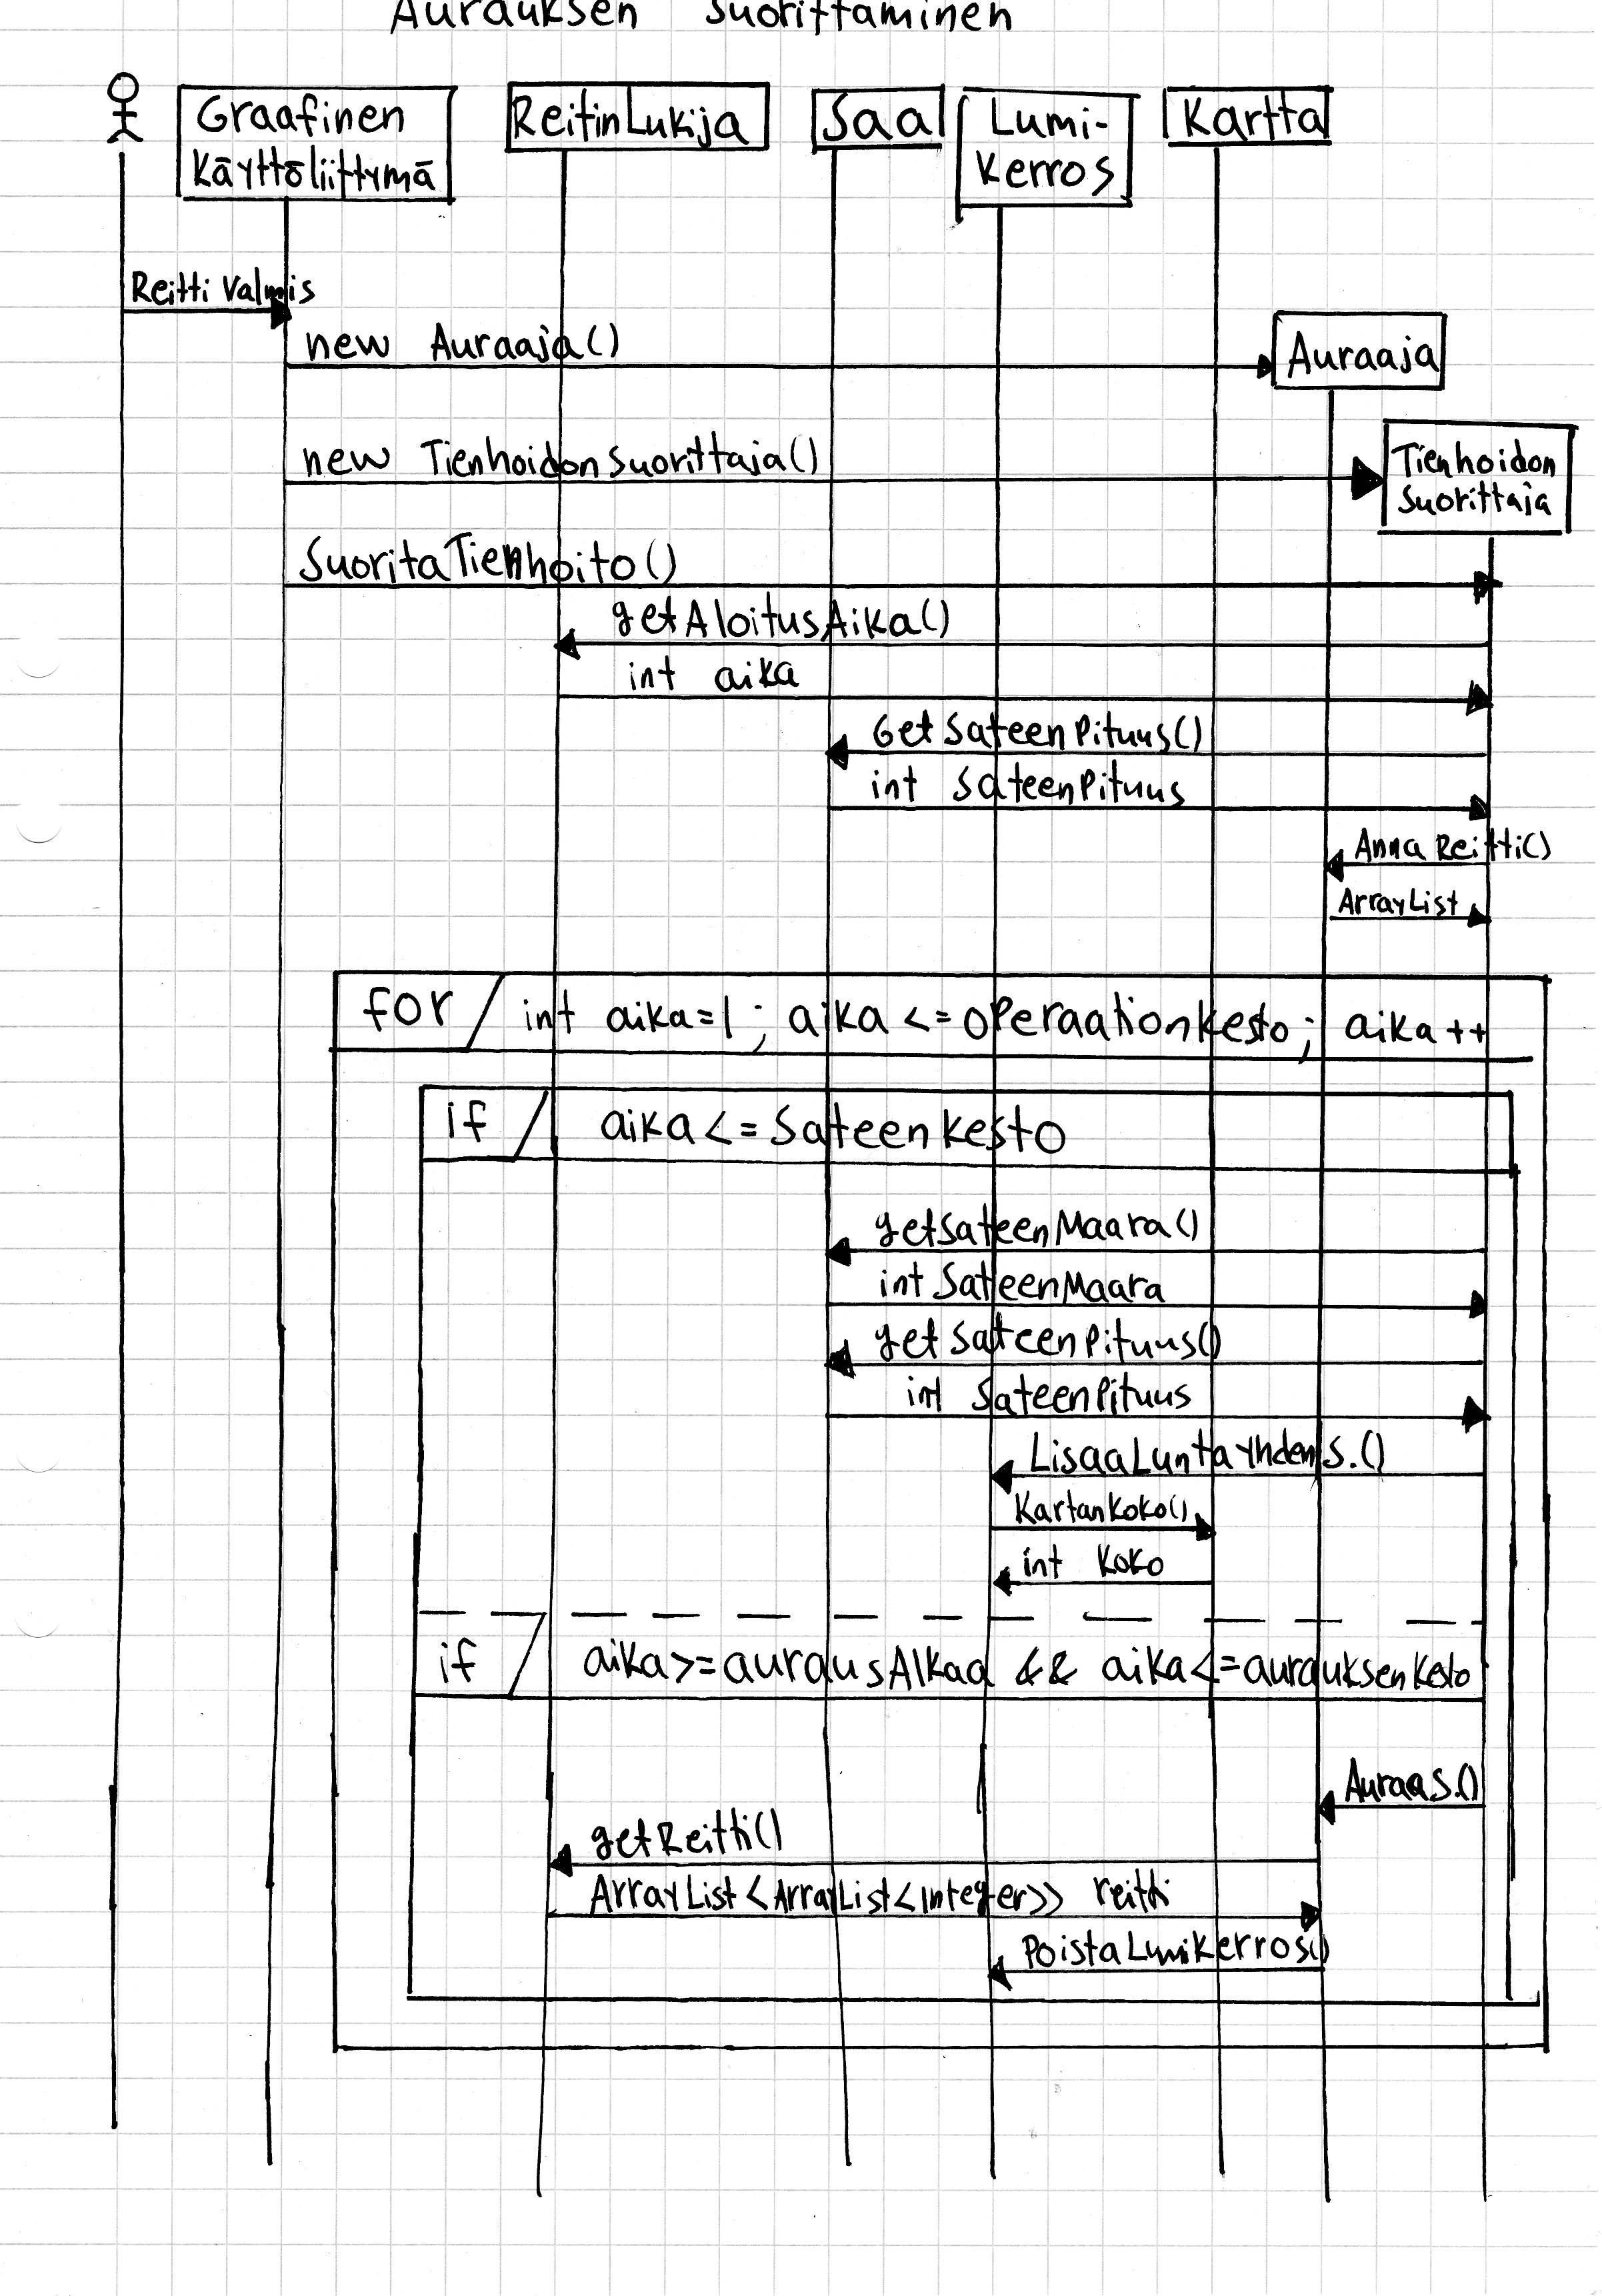 Aurauksen suorittaminen
Graafinen
Käyttöliittymä
ReitinLukija
Saa
Lumi-
kerros
Kartta
Reitti Valmis
new Auraaja()
Auraaja
new TienhoidonSuorittaja()
Tienhoidon
Suorittaja
SuoritaTienhoito()
getAloitusAika()
int aika
GetSateenPituus()
int SateenPituus
AnnaReitti()
ArrayList
for int aika=1; aika <= operaationkesto; aika++
if aika <= Sateenkesto
getSateenMaara()
int SateenMaara
getSateenPituus()
int SateenPituus
LisaaLuntaYhdenS.()
KartanKoko()
int koko
if aika>=aurausAlkaa && aika<=aurauksenkesto
AuraaS.()
getReitti()
ArrayList<ArrayList<Integer>> reitti
PoistaLumikerros()